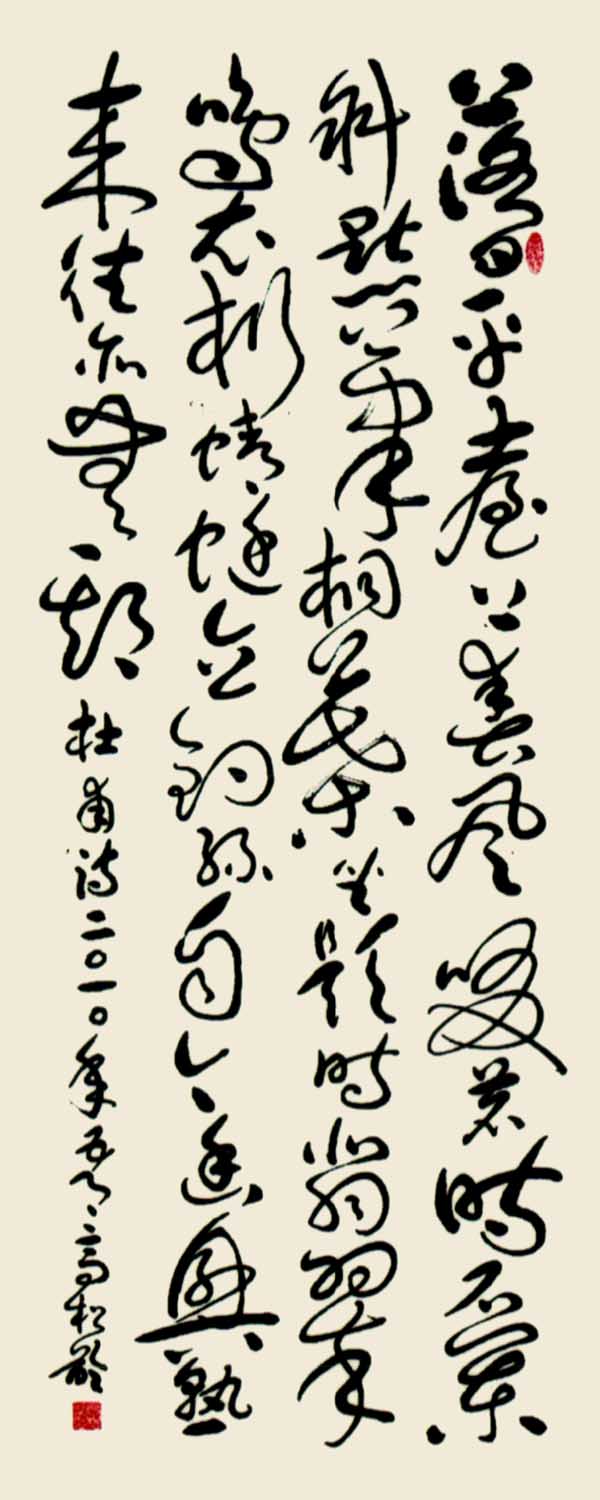 落日平臺上春風啜茗時石闌
斜點筆桐葉坐題時翡翠
鳴衣桁蜻蜓立釣絲自今幽興熟
来往亦無期 杜甫詩二〇一〇年五月高松齡